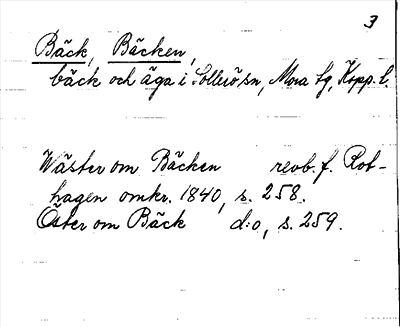 3
Bäck, Bäcken,
bäck och äga i Sollerö sn, Mora tg, Kopp. l.
Wäster om Bäcken revb. f. Rot-
hagen omkr. 1840, s. 258.
Öster om Bäck d:o, s. 259.